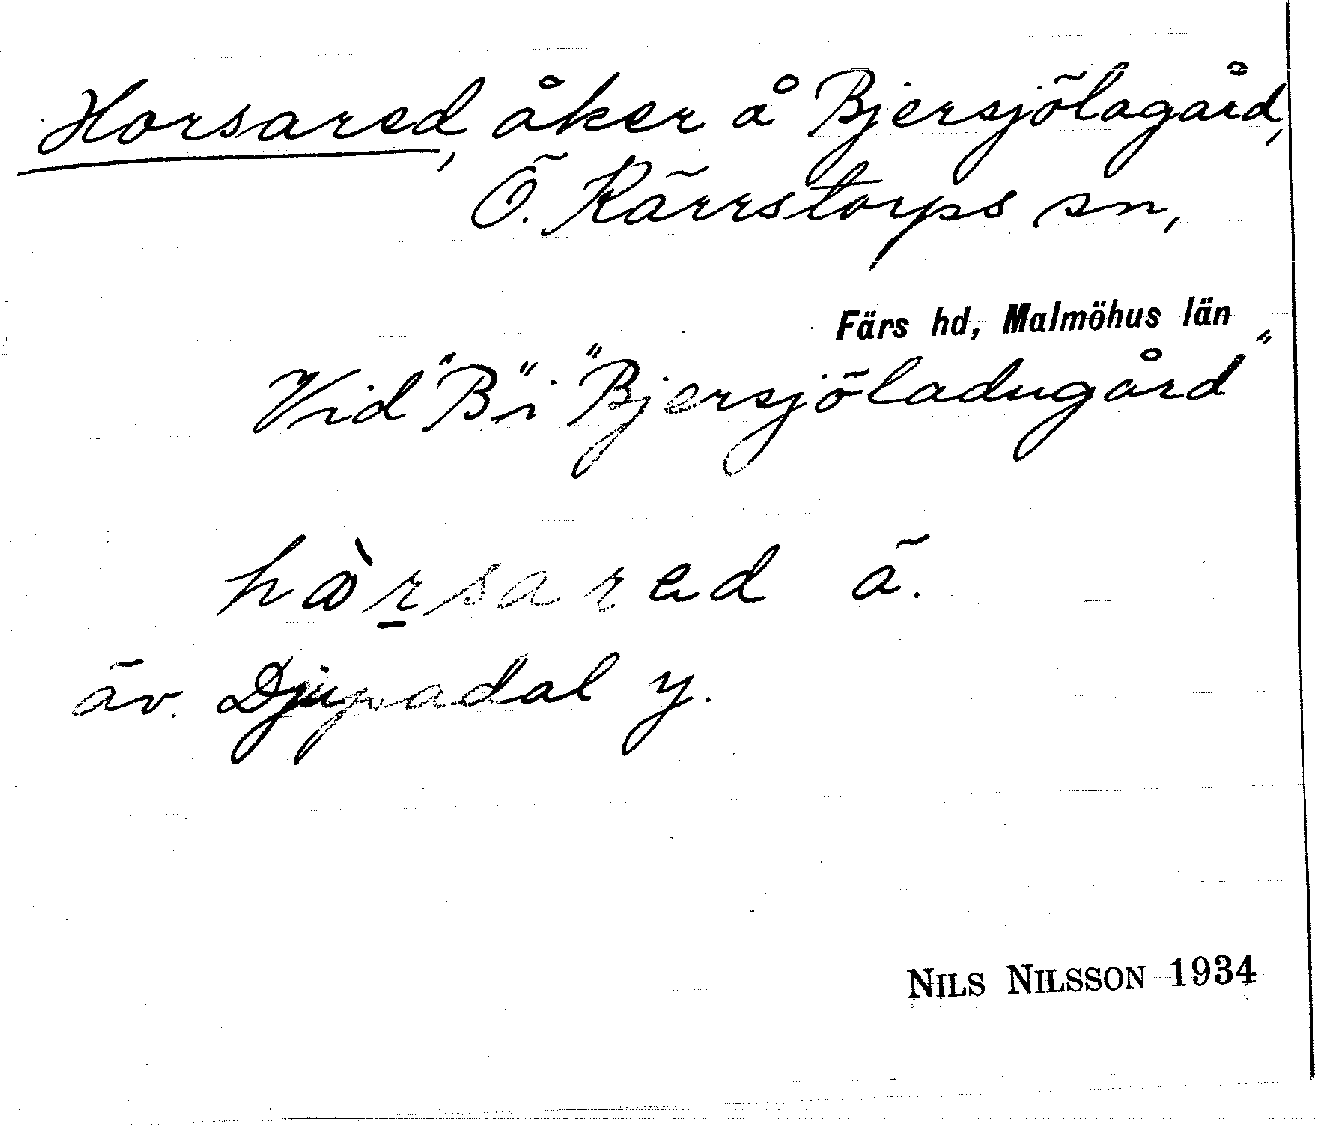 Horsared, åker å Bjersjölagård,
Ö. Kärrstorps sn,
Färs hd, Malmöhus län
Vid "B" i "Bjersjöladugård"
hòrsared ä.
äv. Djupadal y.
NILS NILSSON 1934